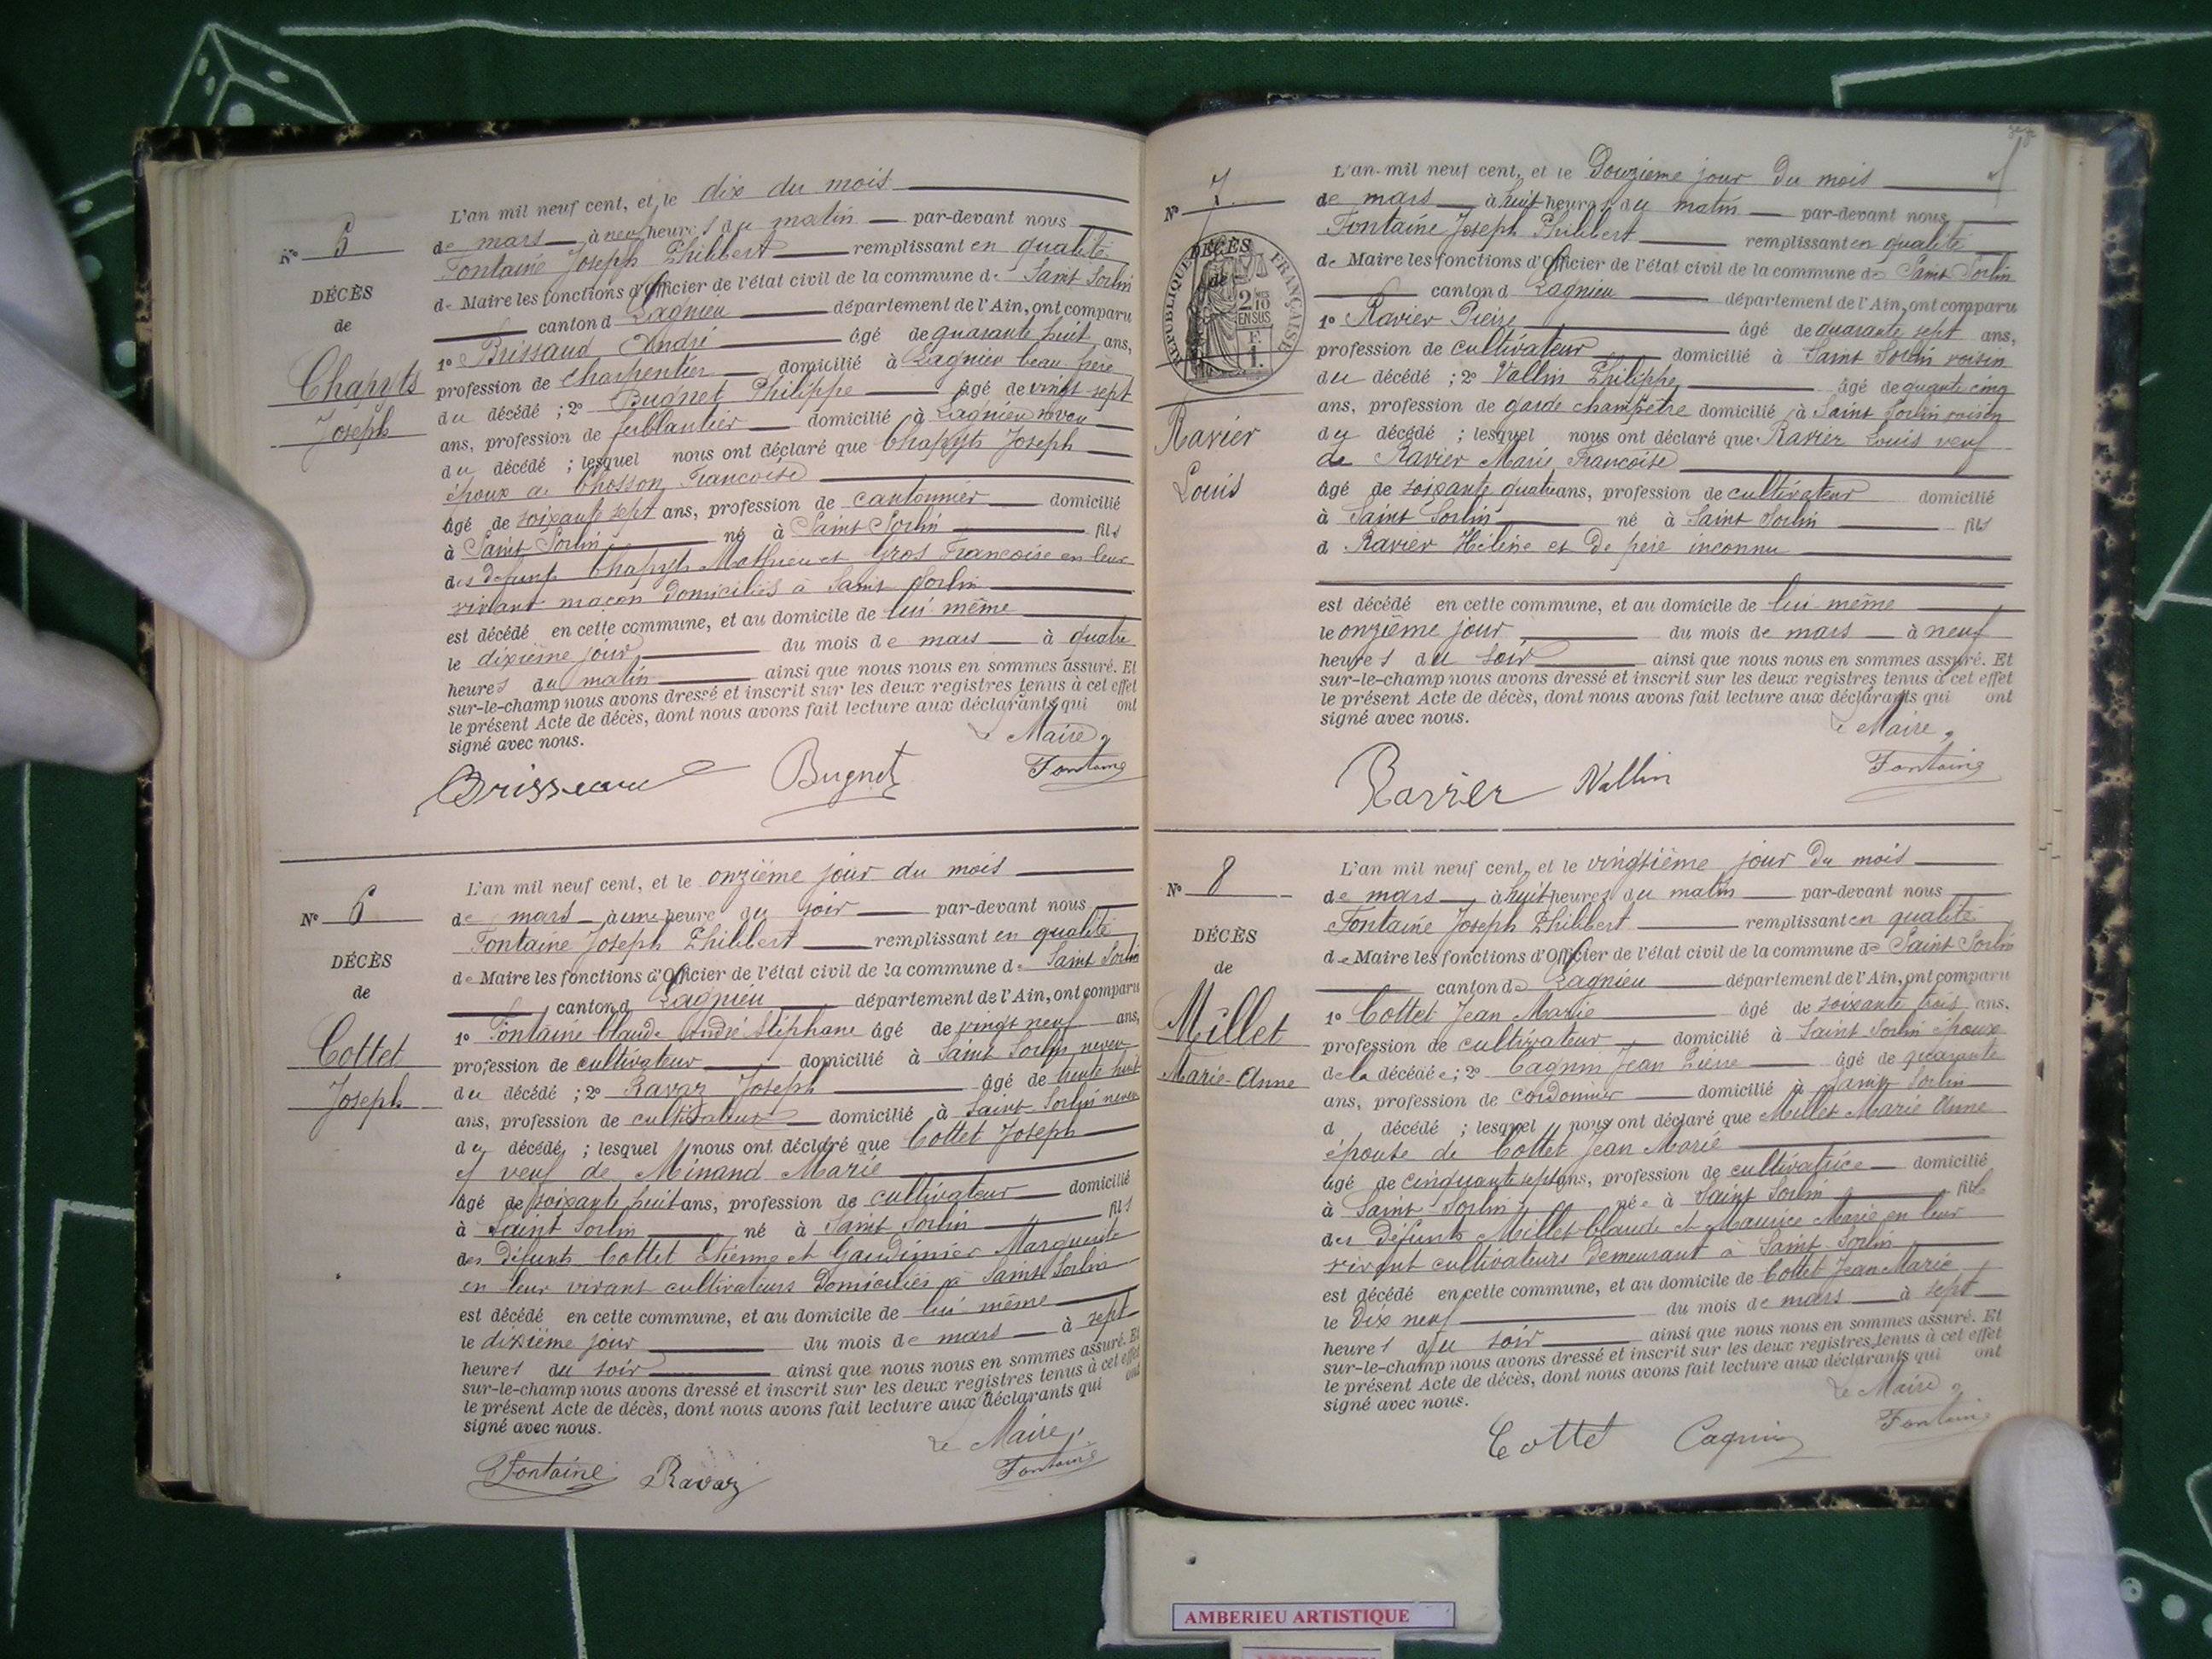 L'an mil neuf cent, et le dix du mois
de mars à neuf heures du matin par-devant nous
Fontaine Joseph Philibert remplissant en qualité
de Maire les fonctions d'Officier de l'état civil de la commune de Saint Sorlin
canton d Lagnieu département de l'Ain, ont comparu
1º Brissaud André âgé de quarante huit ans,
profession de charpentier domicilié à Lagnieu beau frère
du décédé ; 2º Bugnet Philippe âgé de vingt sept
ans, profession de ferblantier domicilié à Lagnieu neveu
du décédé ; lesquel nous ont déclaré que Chapyts Joseph
époux de Chosson Francoise
âgé de soixante sept ans, profession de cantonnier domicilié
à Saint Sorlin né à Saint Sorlin fils
des défunts Chapyts Mathieu et Gros Francoise en leur
vivant maçon domiciliés à Saint Sorlin
est décédé en cette commune, et au domicile de lui même
le dixième jour du mois de mars à quatre
heures du matin ainsi que nous nous en sommes assuré. Et
sur-le-champ nous avons dressé et inscrit sur les deux registres tenus à cet effet
le présent Acte de décès, dont nous avons fait lecture aux déclarants qui ont
signé avec nous.
Le Maire,
Bugnet Fontaine
Nº 5
DÉCÈS
de
Chapyts
Joseph
Nº 6
DÉCÈS
de
Cottet
Joseph
L'an mil neuf cent, et le onzième jour du mois
de mars à une heure du soir par-devant nous
Fontaine Joseph Philibert remplissant en qualité
de Maire les fonctions d'Officier de l'état civil de la commune de Saint Sorlin
canton d Lagnieu département de l'Ain, ont comparu
1º Fontaine Claude André Stéphane âgé de vingt neuf ans,
profession de cultivateur domicilié à Saint Sorlin neveu
du décédé ; 2º Ravaz Joseph âgé de trente huit
ans, profession de cultivateur domicilié à Saint-Sorlin neveu
du décédé ; lesquel nous ont déclaré que Cottet Joseph
veuf de Minand Marie
âgé de soixante huit ans, profession de cultivateur domicilié
à Saint Sorlin né à Saint Sorlin fils
des défunts Cottet Etienne et Gaudimier Marguerite
en leur vivant cultivateurs domiciliés à Saint Sorlin
est décédé en cette commune, et au domicile de lui même
le dixième jour du mois de mars à sept
heures du soir ainsi que nous nous en sommes assuré. Et
sur-le-champ nous avons dressé et inscrit sur les deux registres tenus à cet effet
le présent Acte de décès, dont nous avons fait lecture aux déclarants qui ont
signé avec nous.
Le Maire,
Fontaine Ravaz Fontaine
Nº 7
DÉCÈS
de
RÉPUBLIQUE FRANÇAISE
2/10
EN SUS
F.
1.
Ravier
Louis
L'an mil neuf cent, et le Douzième jour du mois
de mars à huit heures du matin par-devant nous
Fontaine Joseph Philibert remplissant en qualité
de Maire les fonctions d'Officier de l'état civil de la commune de Saint Sorlin
canton d Lagnieu département de l'Ain, ont comparu
1º Ravier Pierre âgé de quarante sept ans,
profession de cultivateur domicilié à Saint Sorlin voisin
du décédé ; 2º Vallin Philippe âgé de quante cinq
ans, profession de garde champêtre domicilié à Saint Sorlin voisin
du décédé ; lesquel nous ont déclaré que Ravier Louis veuf
de Ravier Marie Francoise
âgé de soixante quatre ans, profession de cultivateur domicilié
à Saint Sorlin né à Saint Sorlin fils
d Ravier Hélène et de père inconnu
est décédé en cette commune, et au domicile de lui même
le onzième jour du mois de mars à neuf
heures du soir ainsi que nous nous en sommes assuré. Et
sur-le-champ nous avons dressé et inscrit sur les deux registres tenus à cet effet
le présent Acte de décès, dont nous avons fait lecture aux déclarants qui ont
signé avec nous.
Le Maire,
Ravier Vallin Fontaine
Nº 8
DÉCÈS
de
Millet
Marie-Anne
L'an mil neuf cent, et le vingtième jour du mois
de mars à huit heures du matin par-devant nous
Fontaine Joseph Philibert remplissant en qualité
de Maire les fonctions d'Officier de l'état civil de la commune de Saint Sorlin
canton de Lagnieu département de l'Ain, ont comparu
1º Cottet Jean Marie âgé de soixante trois ans,
profession de cultivateur domicilié à Saint Sorlin époux
de la décédée ; 2º Cagnin Jean Pierre âgé de quarante
ans, profession de cordonnier domicilié à Saint Sorlin
d décédé ; lesquel nous ont déclaré que Millet Marie Anne
épouse de Cottet Jean Marie
âgé de cinquante sept ans, profession de cultivatrice domicilié
à Saint-Sorlin née à Saint Sorlin fille
des défunts Millet Claude et Maurice Marie en leur
vivant cultivateurs demeurant à Saint-Sorlin
est décédé en cette commune, et au domicile de Cottet Jean Marie
le dix neuf du mois de mars à sept
heures du soir ainsi que nous nous en sommes assuré. Et
sur-le-champ nous avons dressé et inscrit sur les deux registres tenus à cet effet
le présent Acte de décès, dont nous avons fait lecture aux déclarants qui ont
signé avec nous.
Le Maire,
Cottet Cagnin Fontaine
AMBERIEU ARTISTIQUE